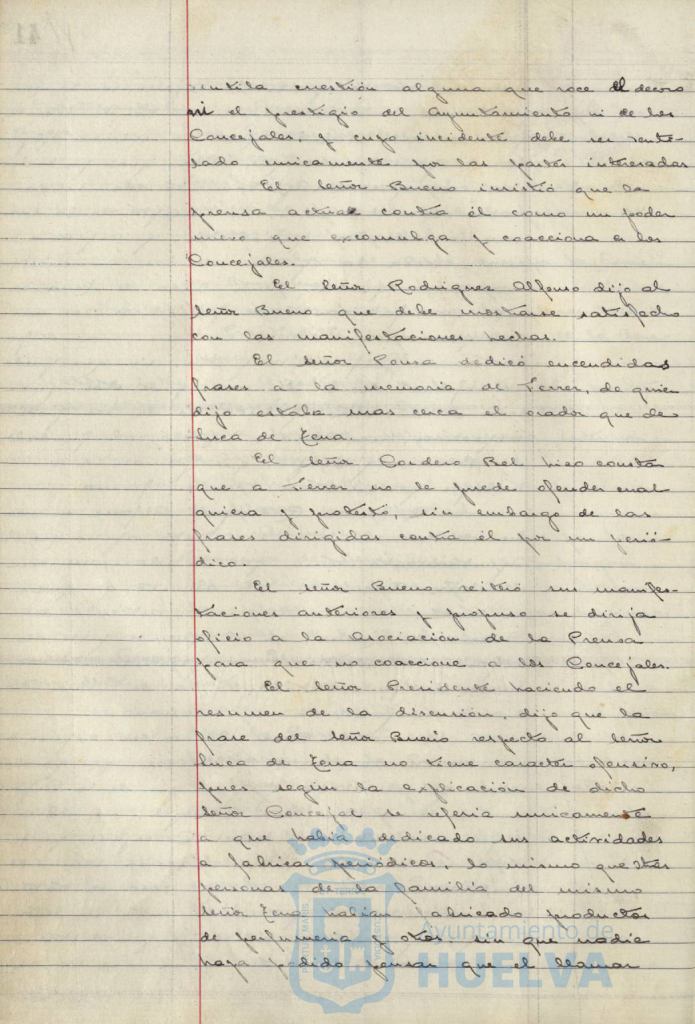 cuestión alguna que roce el decoro
ni el prestigio del Ayuntamiento ni de los
Concejales, y cuyo incidente debe ser
unicamente por las partes interesadas
El Señor Bueno insistió que la
prensa actua contra él como un poder
nuevo que excomulga y coacciona a los
Concejales.
El Señor Rodriguez Alfonso dijo al
Señor Bueno que debe mostrarse satisfecho
con las manifestaciones hechas.
El Señor Ponsa dedicó encendidas
frases a la memoria de Ferrer, de quien
dijo estaba mas cerca el orador que de
Luca de Tena.
El Señor Cordero Bel hizo constar
que a Ferrer no le puede ofender cual
quiera y protestó, sin embargo de las
frases dirigidas contra él por un perió-
dico.
El Señor Bueno reiteró sus manifes-
taciones anteriores y propuso se dirija
oficio a la Asociación de la Prensa
para que no coaccione a los Concejales.
El Señor Presidente haciendo el
resumen de la discusión, dijo que la
frase del Señor Bueno respecto al Señor
Luca de Tena no tiene caracter ofensivo,
pues según la explicación de dicho
Señor Concejal se referia unicamente
a que habia dedicado sus actividades
a fabricar periódicos, lo mismo que otras
personas de la familia del mismo
Señor Tena habian fabricado productos
de perfumeria y otros, sin que nadie
haya podido pensar que el llamar
Ayuntamiento de
HUELVA